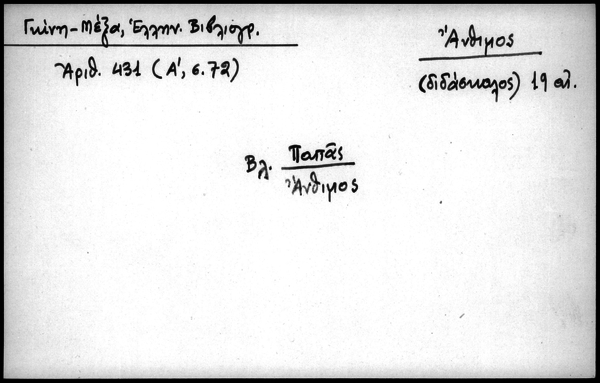 Γκίνη-Μέξα, Ἑλλην. Βιβλιογρ.
Ἀριθ. 431 (Α', σ. 72)
Ἄνθιμος
(διδάσκαλος) 19 αἰ.
Βλ. Παπᾶς
Ἄνθιμος